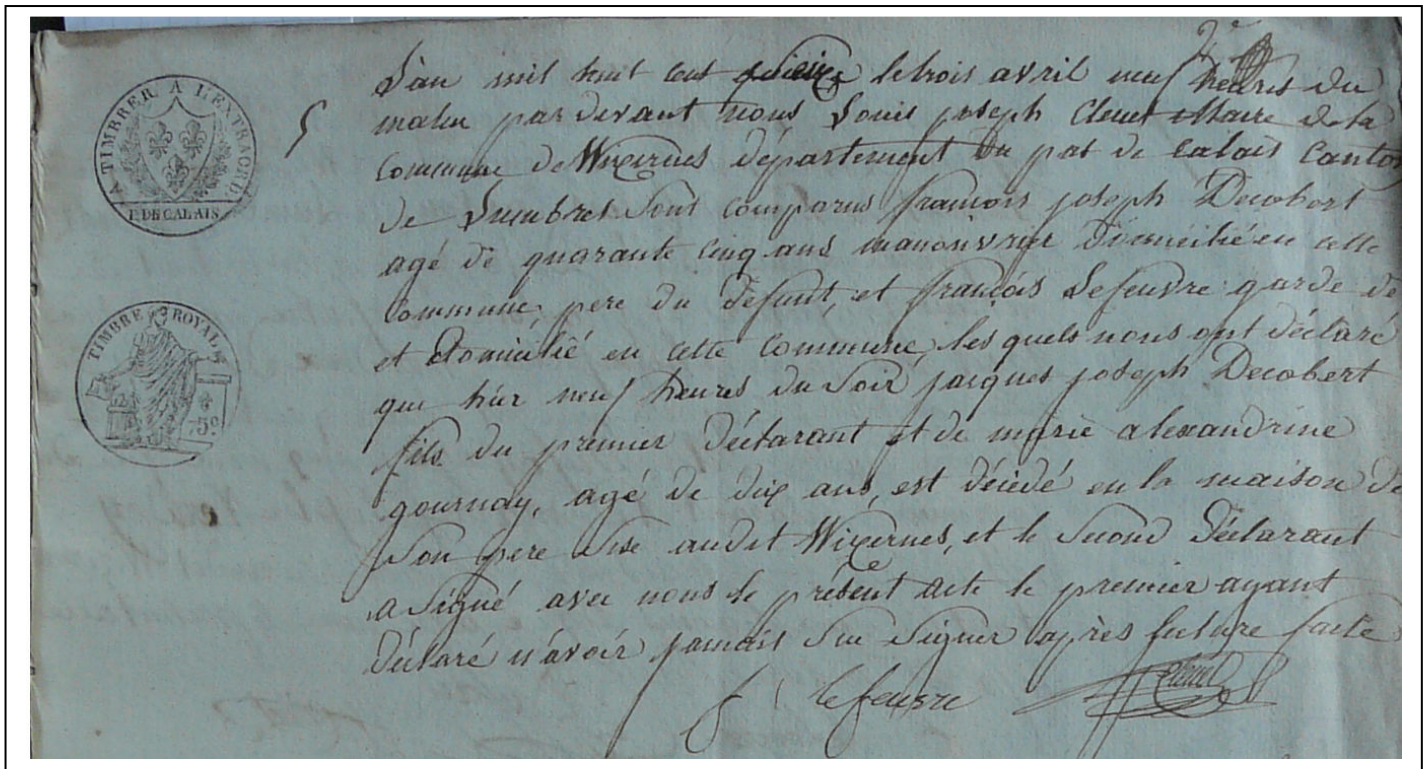 A TIMBRER A L'EXTRAORD.
P. DE CALAIS
TIMBRE ROYAL
5
L'an mil huit cent seize le trois avril neuf heures du
matin par devant nous Louis joseph Clenet Maire de la
Commune de Wizernes département du pas de Calais Canton
de Lumbres Sont comparus françois joseph Decobert
agé de quarante cinq ans manouvrier Domicilié en cette
Commune, pere du défunt, et françois Lefeuvre garde de
et Domicilié en cette Commune, les quels nous ont déclaré
que hier neuf heures du Soir jacques joseph Decobert
fils du premier déclarant et de marie alexandrine
gournay, agé de dix ans, est décédé en la maison de
Son pere Sise audit Wizernes, et le Second Déclarant
a Signé avec nous le présent acte le premier ayant
Déclaré n'avoir jamais Sue Signer après lecture faite
f Lefeuvre